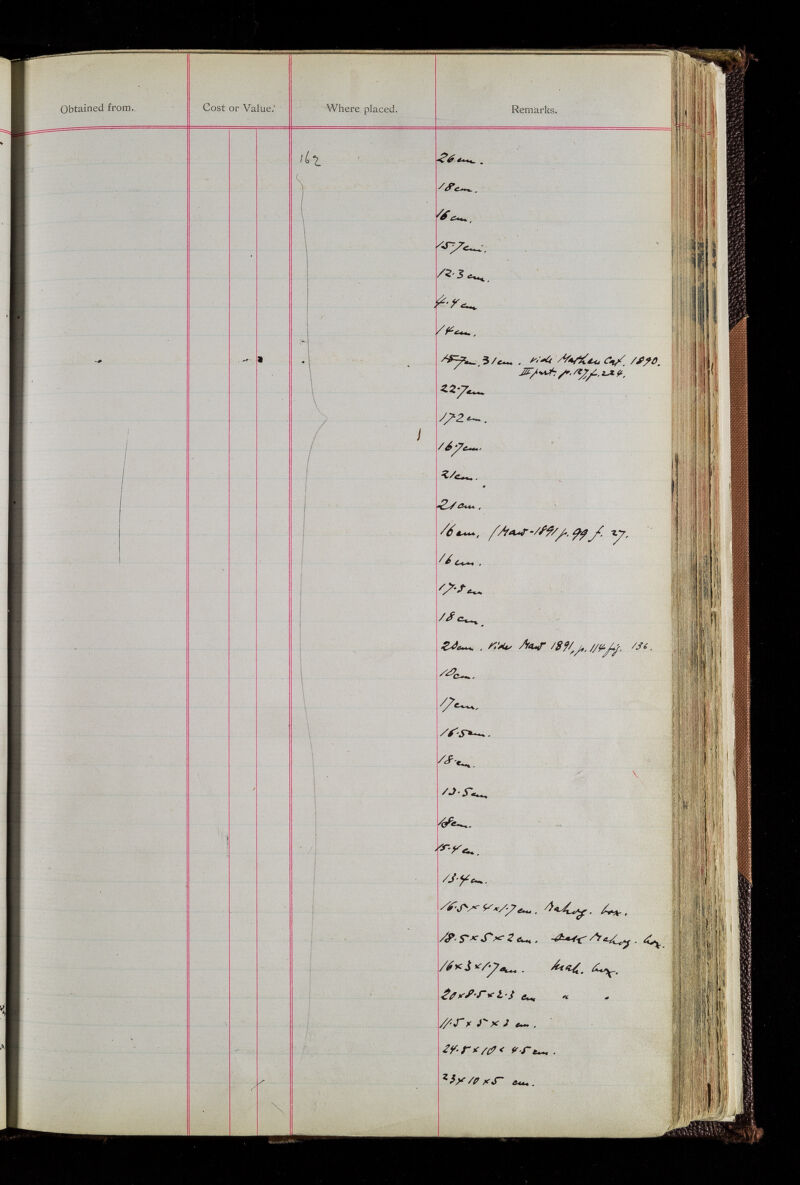 Obtained from. Cost or Value. Where placed. Remarks.
162 26 cm.
18 cm.
16 cm.
15·7 cm.
12·3 cm.
4·4 cm
14 cm.
15·7cm, 31 cm. vide Mathieu Cat. 1890.
III part. p. 127, f. 224.
22·7cm
17·2 cm.
16·7cm
21cm.
21 cm.
16 cm. (Maw 1891 p. 99 f. 27.
16 cm.
17·5 cm
18 cm.
20cm. Vide Maw 1891, p. 114 fig. 136.
10cm.
17cm.
16·5cm.
18 cm.
13·5cm
18cm.
15·4 cm.
13·4 cm.
16·5 × 4 × 1·7 cm. Mahog. box.
18·5 × 5 × 2 cm. Mahog. box.
16 × 3 × 1·7cm. Mah. box.
20 × 8·5 × 2·3 cm " "
11·5 × 5 × 3 cm.
24·5 × 10 × 4·5 cm.
23 × 10 × 5 cm.